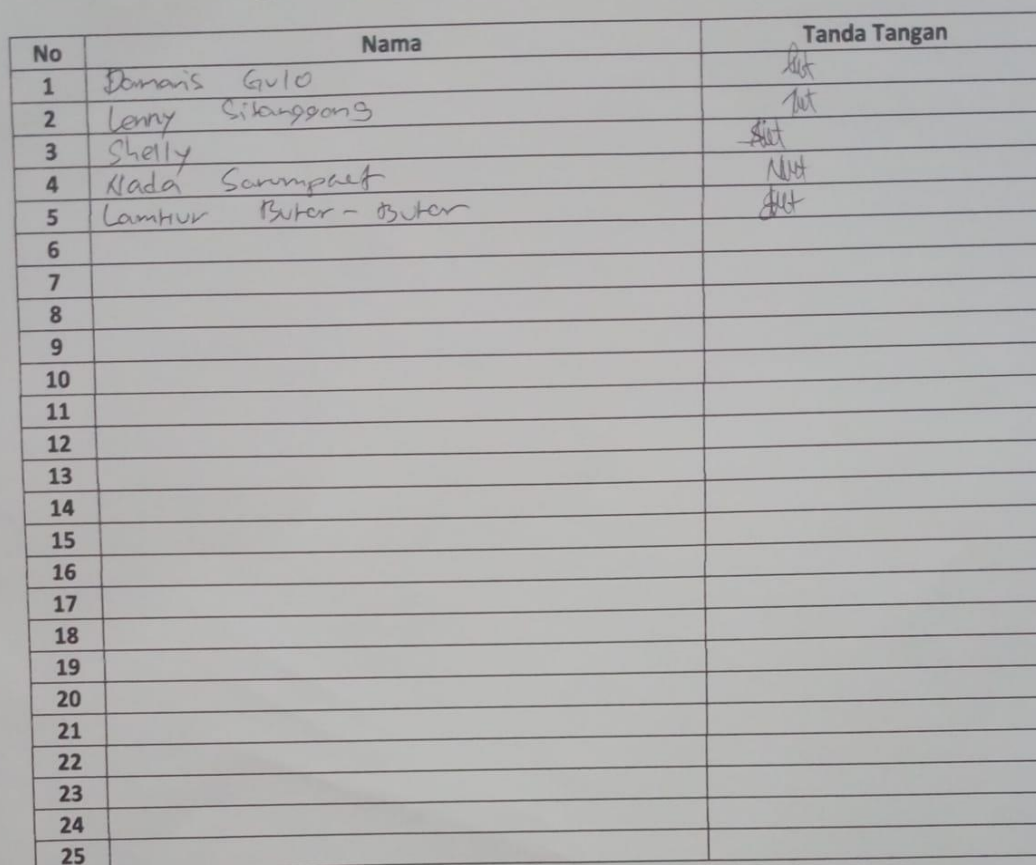 No Nama Tanda Tangan
1 Damaris Gulo
2 Lenny Sitanggang
3 Shelly
4 Nada Sarumpaet
5 Lamhur Butar - Butar
6
7
8
9
10
11
12
13
14
15
16
17
18
19
20
21
22
23
24
25